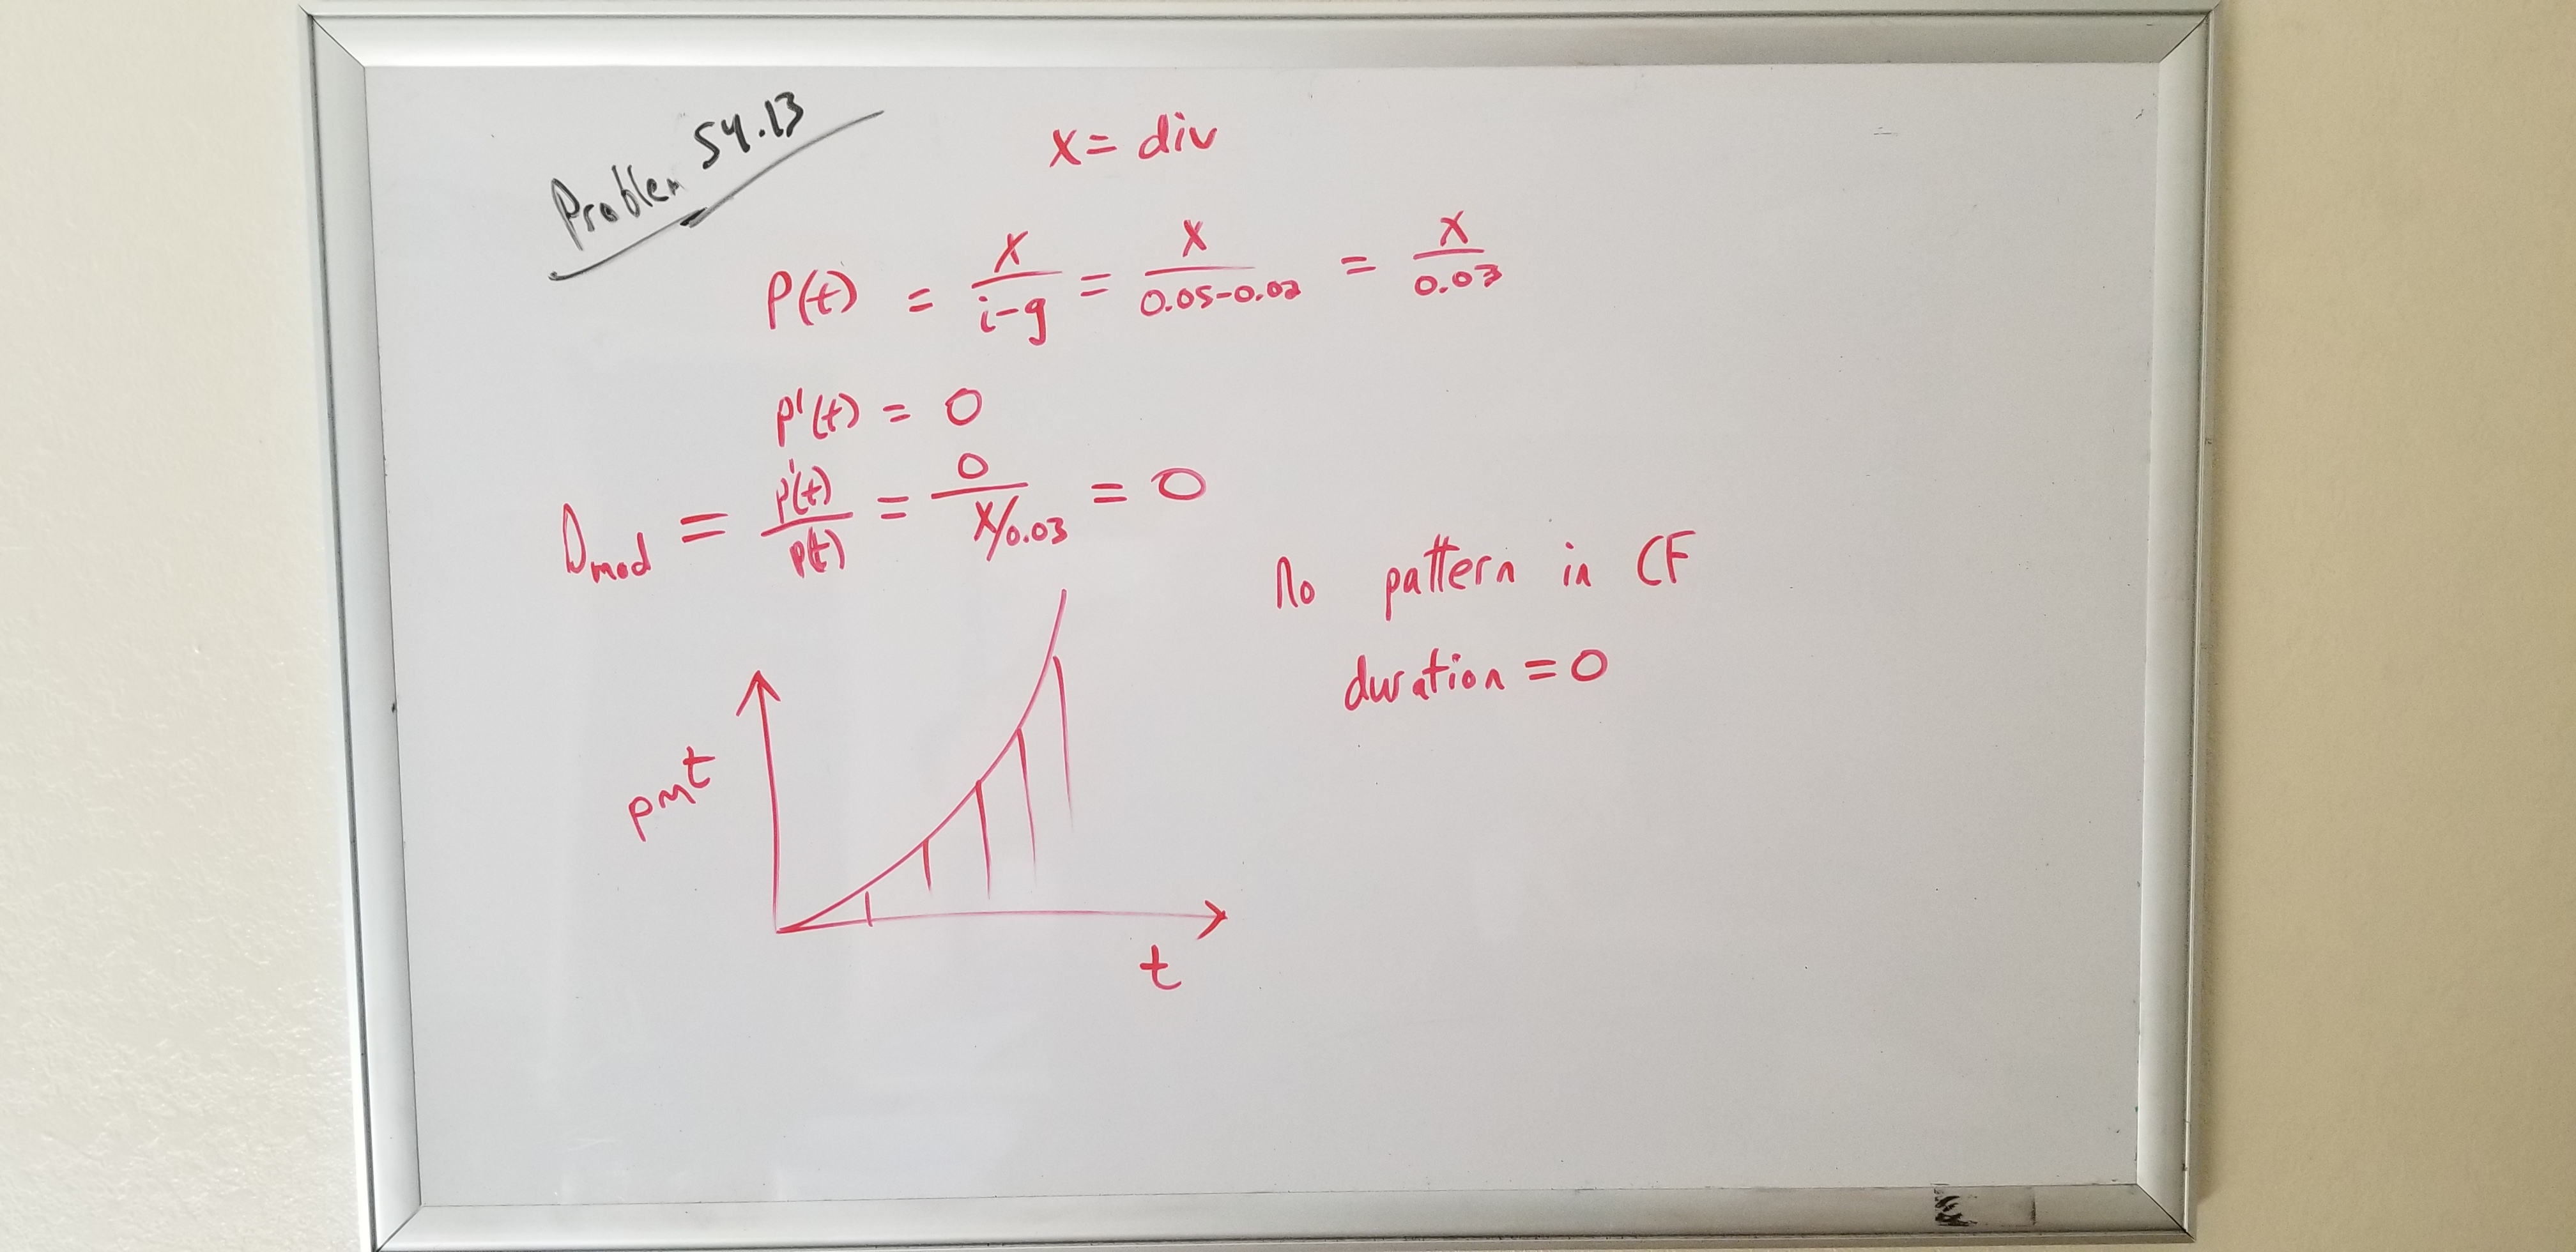 Problem 54.13
x = div
P(t) = x/(i-g) = x/(0.05-0.02) = x/0.03
P'(t) = 0
Dmod = P'(t)/P(t) = 0/(x/0.03) = 0
No pattern in CF
duration = 0
pmt
t